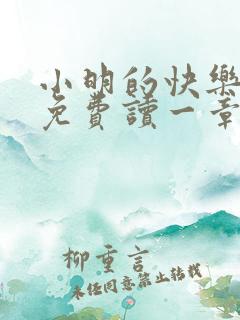 小明的快樂
免費讀一章
柳重言
未经同意禁止转载